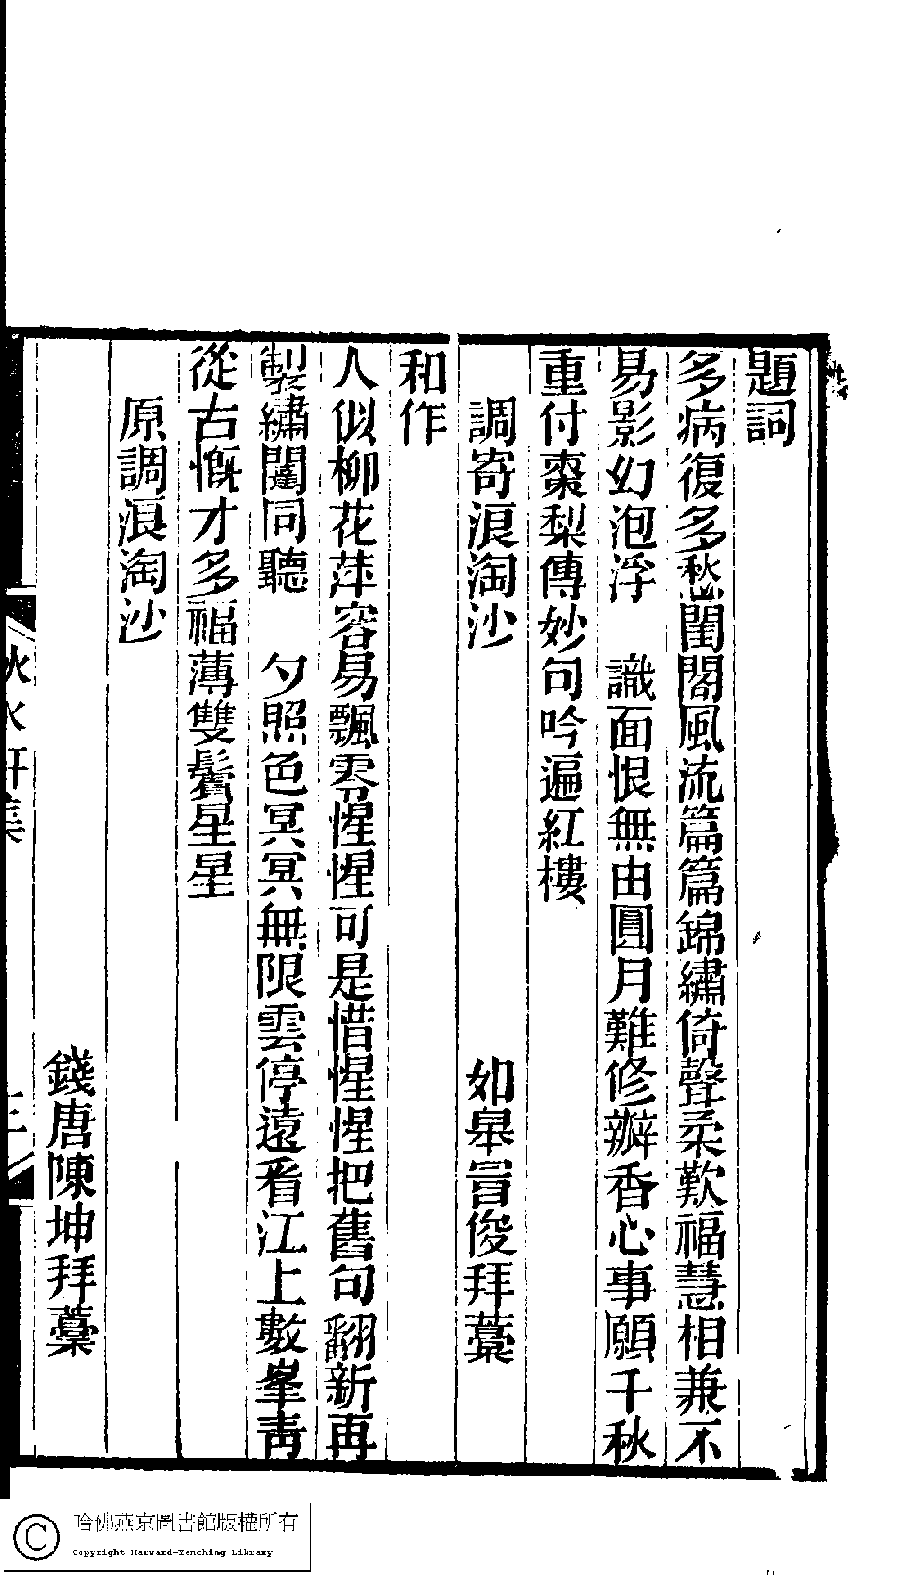 題詞
多病復多愁閨閣風流篇篇錦繡倚聲柔歎福慧相兼不
易影幻泡浮　識面恨無由圓月難修瓣香心事願千秋
重付棗梨傳妙句吟遍紅樓
調寄浪淘沙　如皋冒俊拜藁
和作
人似柳花萍容易飄零惺惺可是惜惺惺把舊句翻新再
製繡闥同聽　夕照色冥冥無限雲停遠看江上數峯靑
從古慨才多福薄雙鬢星星
原調浪淘沙
錢唐陳坤拜藁
秋水軒集
哈佛燕京圖書館版權所有
Copyright Harvard-Yenching Library